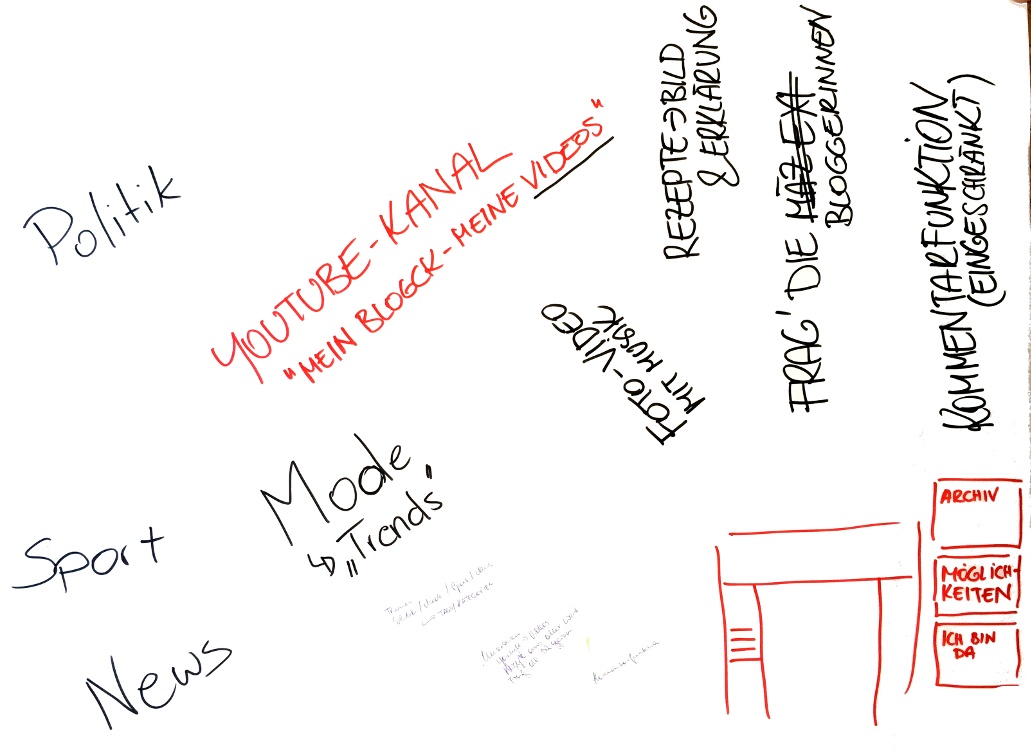 Politik
YOUTUBE-KANAL
"MEIN BLOGCK-MEINE VIDEOS"
REZEPTE→BILD
& ERKLÄRUNG
FRAG' DIE MÄZEXT
BLOGGERINNEN
KOMMENTARFUNKTION
(EINGESCHRÄNKT)
FOTO-VIDEO
MIT MUSIK
Mode
↳ „Trends"
Sport
News
ARCHIV
MÖGLICH-
KEITEN
ICH BIN
DA